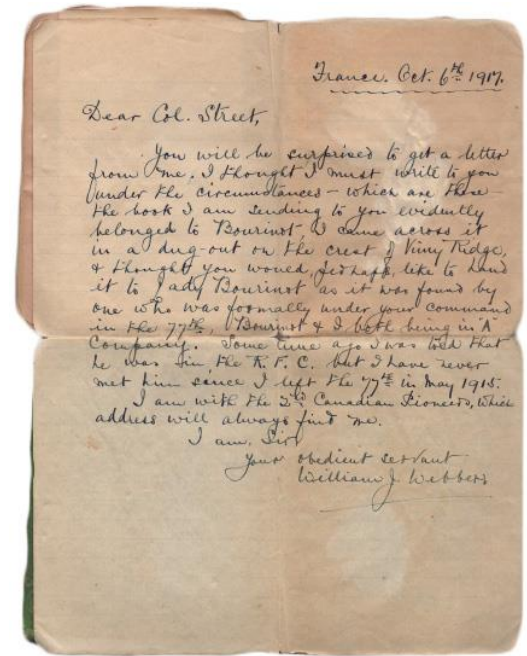 France. Oct. 6th 1917.
Dear Col. Street,
You will be surprised to get a letter
from me. I thought I must write to you
under the circumstances – which are these –
the book I am sending to you evidently
belonged to Bourinot, I came across it
in a dug-out on the crest of Vimy Ridge,
& thought you would, perhaps, like to hand
it to Lady Bourinot as it was found by
one who was formally under your command
in the 77th, Bourinot & I both being in "A"
Company. Some time ago I was told that
he was in the R.F.C. but I have never
met him since I left the 77th in May 1915.
I am with the 2nd Canadian Pioneers, which
address will always find me.
I am, Sir
Your obedient servant
William J. Webbers